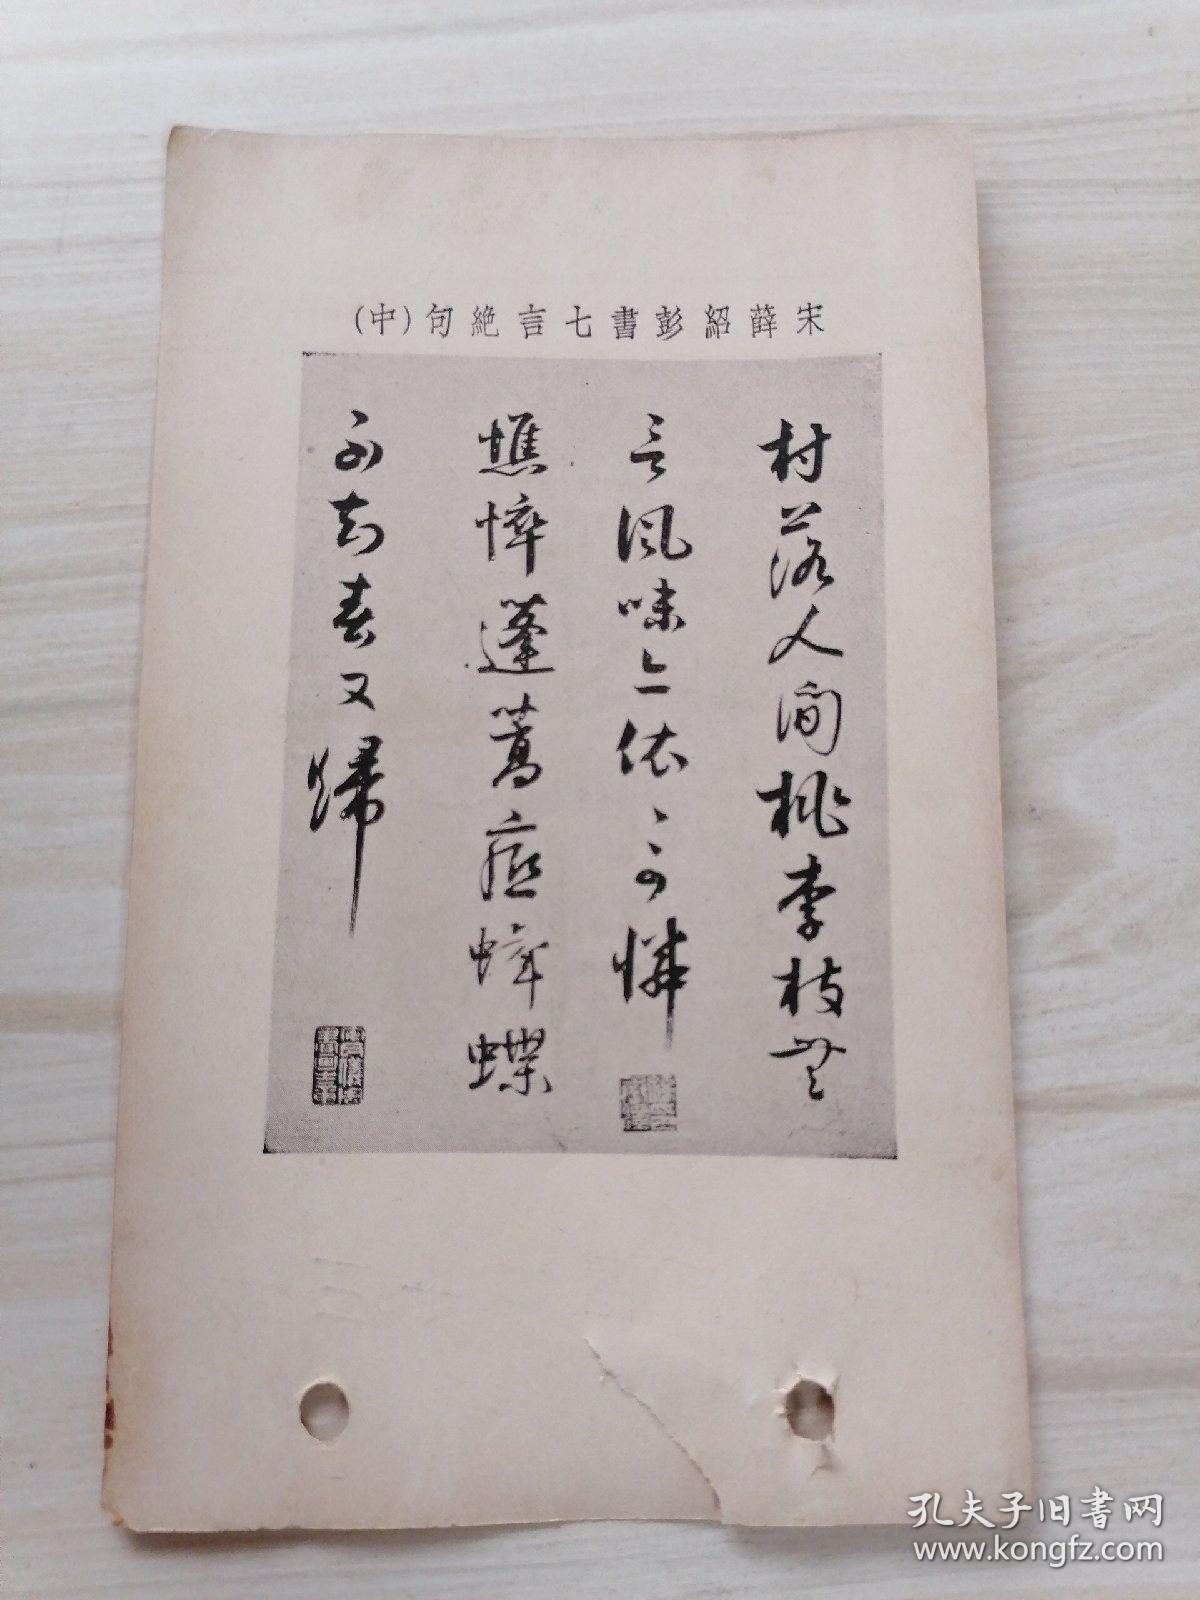 宋薛紹彭書七言絶句(中)
村落人間桃李枝無
言風味亦依〻可憐
憔悴蓬蒿底蜂蝶
不知春又歸
孔夫子旧书网
www.kongfz.com